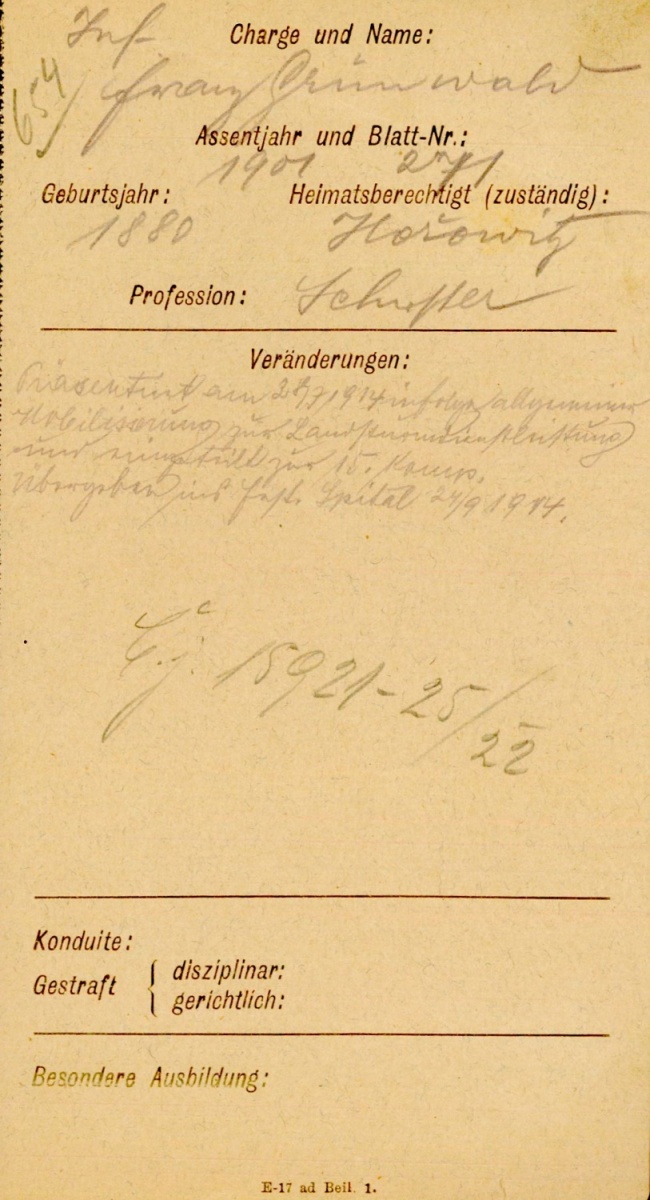 Inf.
Charge und Name:
654/
Franz Grünwald
Assentjahr und Blatt-Nr.:
1901 271
Geburtsjahr: Heimatsberechtigt (zuständig):
1880 Hořowitz
Profession: Schuster
Veränderungen:
Präsentirt am 28/7 1914 infolge allgemeiner
Mobilisierung zur Landsturmdienstleistung
und eingeteilt zur 15. Komp.
Übergeben ins Fest. Spital 24/9 1914.
15921-25/22
Konduite:
Gestraft { disziplinar:
gerichtlich:
Besondere Ausbildung:
E-17 ad Beil. 1.